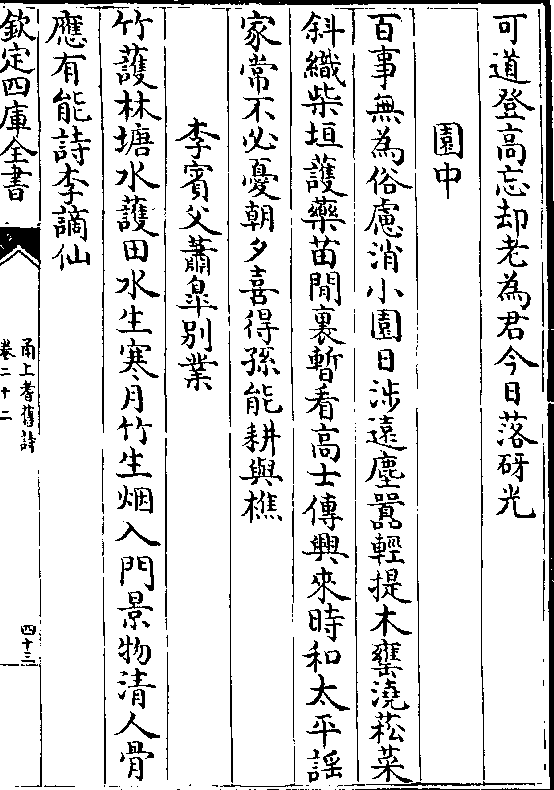 可道登高忘却老為君今日落砑光
園中
百事無為俗慮消小園日涉遠塵囂輕提木甕澆菘菜
斜織柴垣護藥苗閒裏暫看高士傳興來時和太平謡
家常不必憂朝夕喜得孫能耕與樵
李賓父蕭臯别業
竹護林塘水護田水生寒月竹生烟入門景物清人骨
應有能詩李謫仙
欽定四庫全書
甬上耆舊詩
卷二十二
四十三